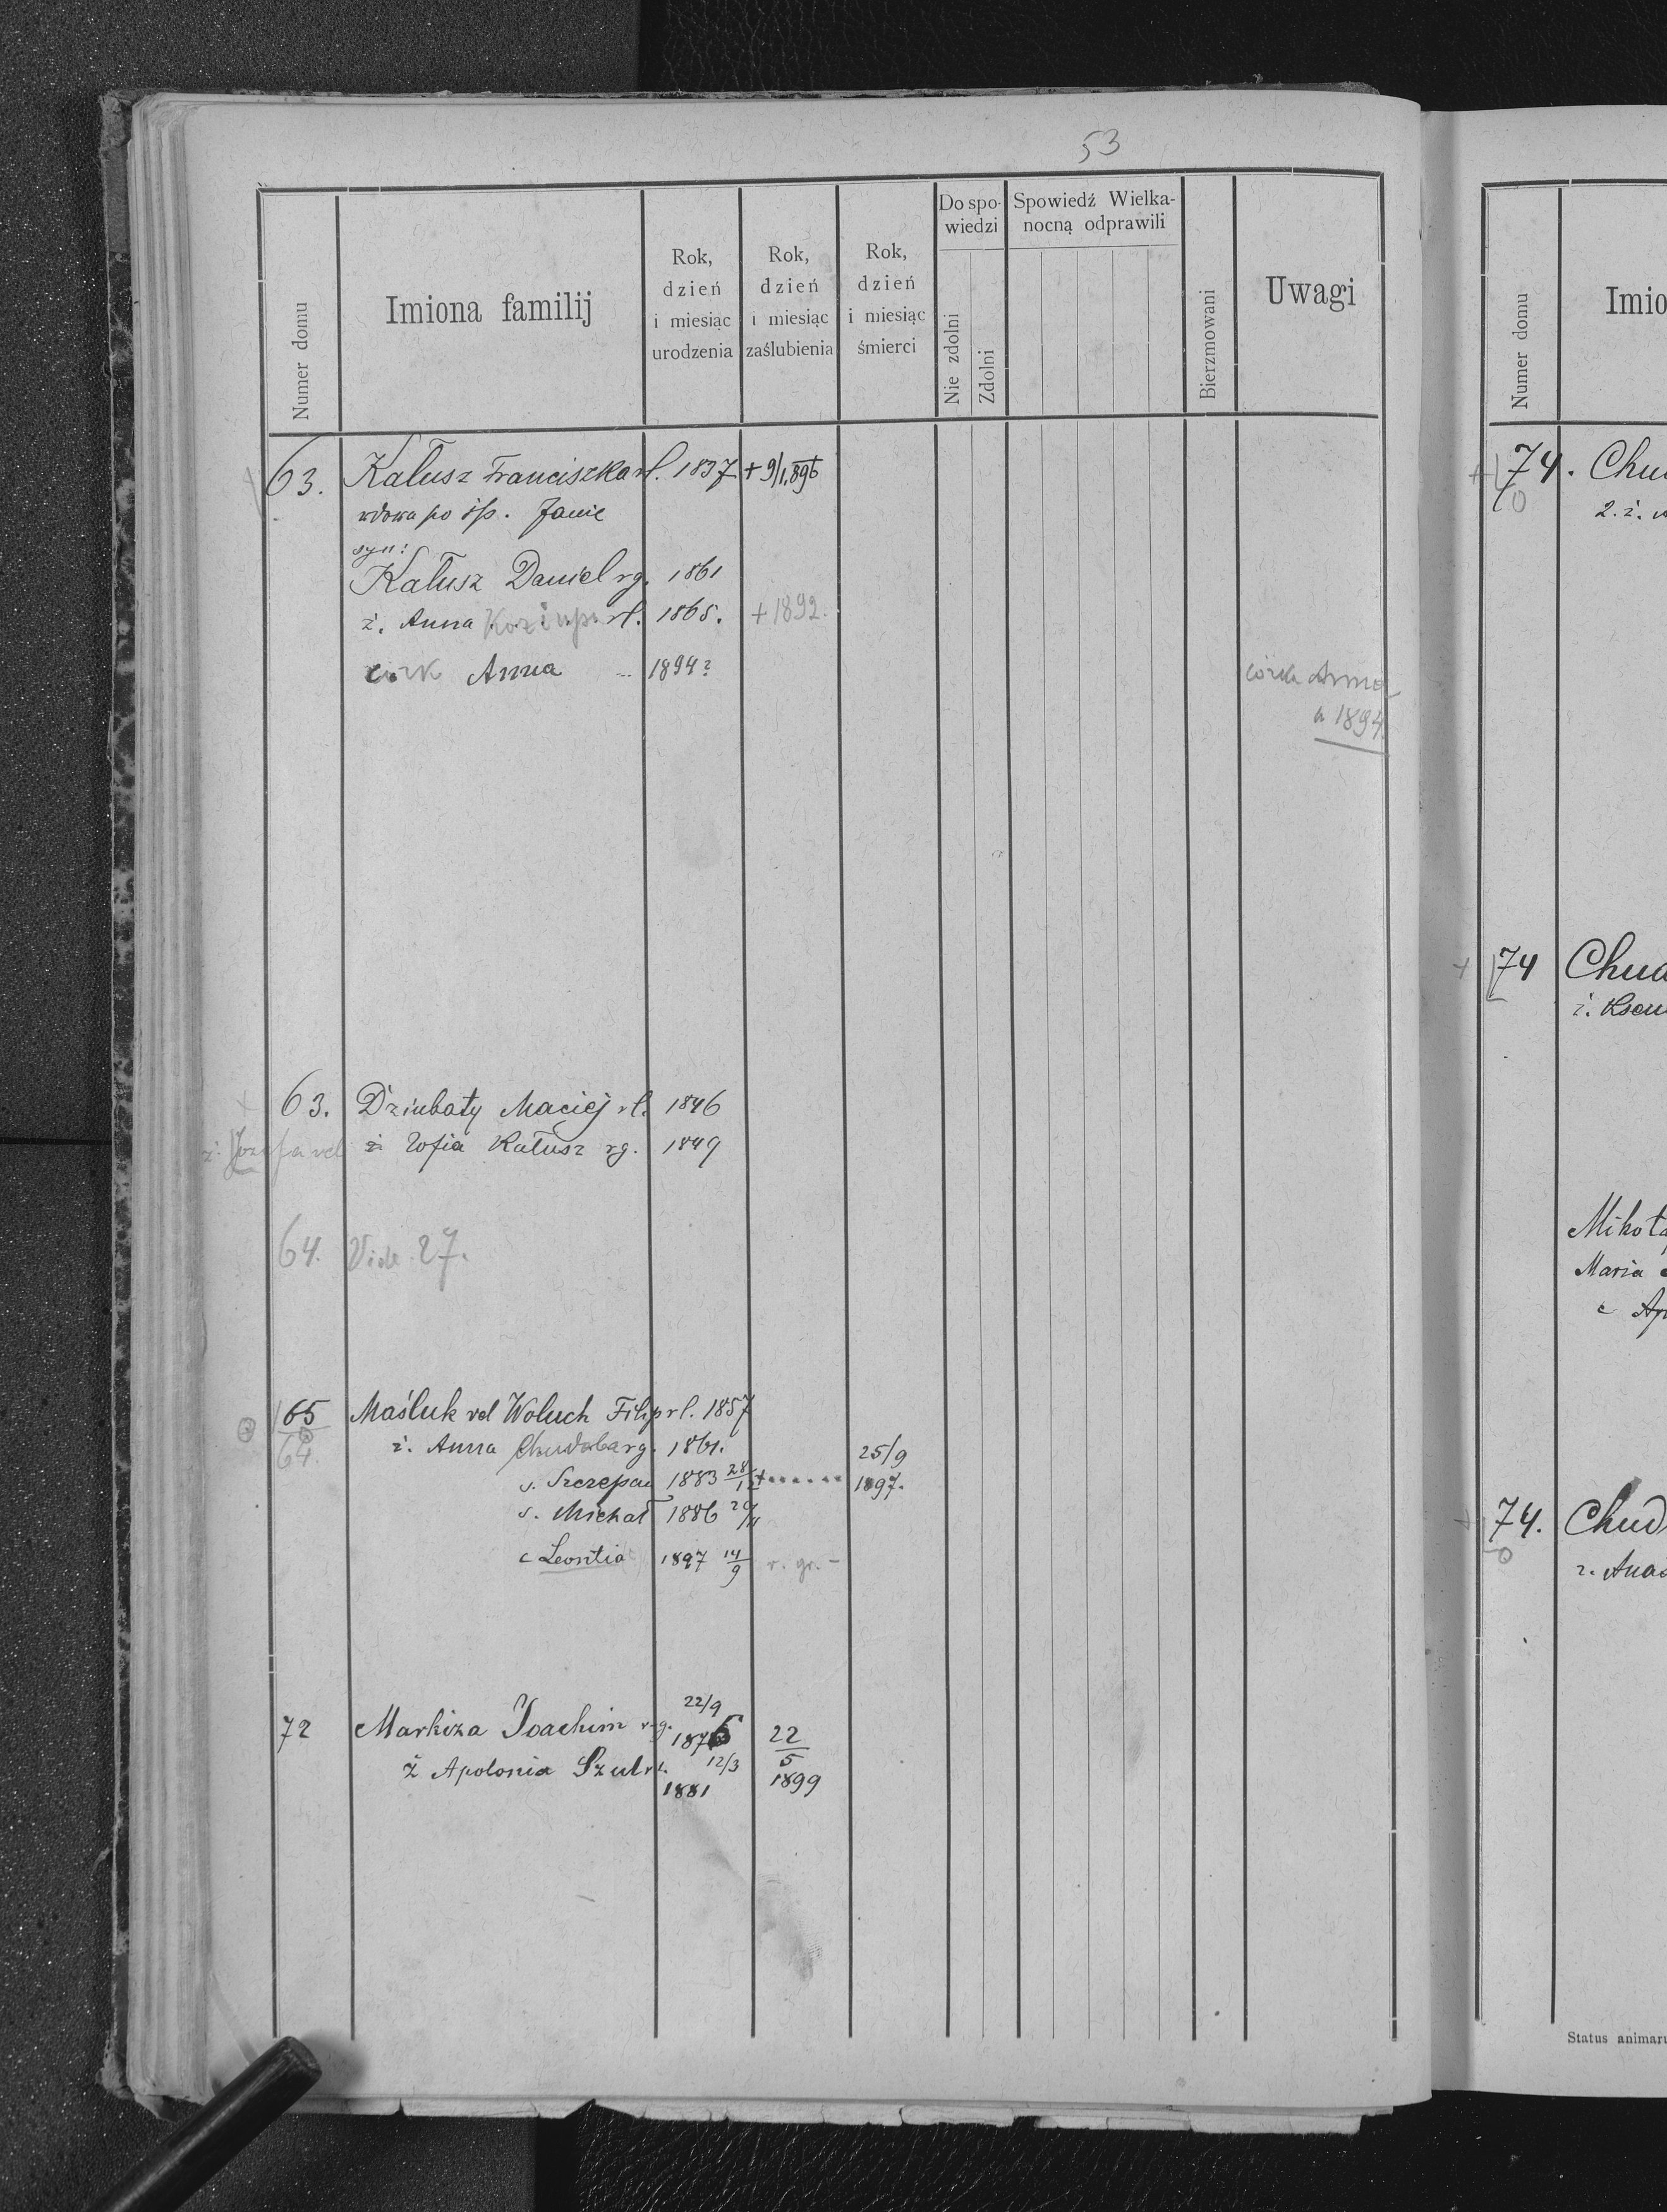 53
Numer domu
Imiona familij
Rok, dzień i miesiąc urodzenia
Rok, dzień i miesiąc zaślubienia
Rok, dzień i miesiąc śmierci
Do spowiedzi
Nie zdolni
Zdolni
Spowiedź Wielkanocną odprawili
Bierzmowani
Uwagi
63. Kałusz Franciszka rl. 1837 + 9/1.896
wdowa po śp. Janie
syn:
Kałusz Daniel rg. 1861
ż. Anna rl. 1865. + 1892.
Anna 1894?
córka Anna
1894
63. Dziubaty Maciej rl. 1846
ż Zofia Kałusz rg. 1849
64. Vide 27.
65 Maśluk vel Woluch Filip rl. 1857
64.
ż. Anna Chudoba rg. 1861.
s. Szczepan 1883 28/12 + 25/9 1897.
s. Michał 1886 29/11
c Leontia 1897 14/9 r. gr. -
72 Markiza Joachim rg. 22/9 1876 22/5 1899
ż Apolonia Szul rł. 12/3 1881
Numer domu
Imio
74. Chu
2. ż.
74 Chud
ż. Ksen
Mikoła
Maria
c Ap
74. Chud
ż. Anas
Status animaru